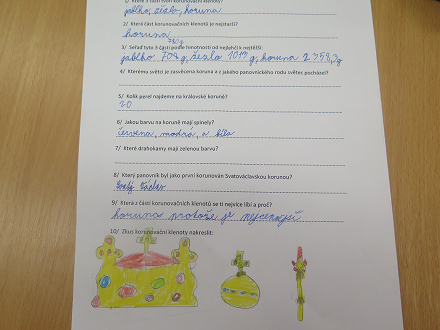 1/ Které 3 části tvoří korunovační klenoty?
jablko, žezlo, koruna
2/ Která část korunovačních klenotů je nejstarší?
koruna
780g
3/ Seřaď tyto 3 části podle hmotnosti od nejlehčí k nejtěžší:
jablko 780 g, žezlo 1013 g, koruna 2358,3g
4/ Kterému světci je zasvěcena koruna a z jakého panovnického rodu světec pocházel?
5/ Kolik perel najdeme na královské koruně?
20
6/ Jakou barvu na koruně mají spinely?
červená, modrá, a bílá
7/ Které drahokamy mají zelenou barvu?
8/ Který panovník byl jako první korunován Svatováclavskou korunou?
Svatý Václav
9/ Která z částí korunovačních klenotů se ti nejvíce líbí a proč?
koruna protože je nejcennější
10/ Zkus korunovační klenoty nakreslit: